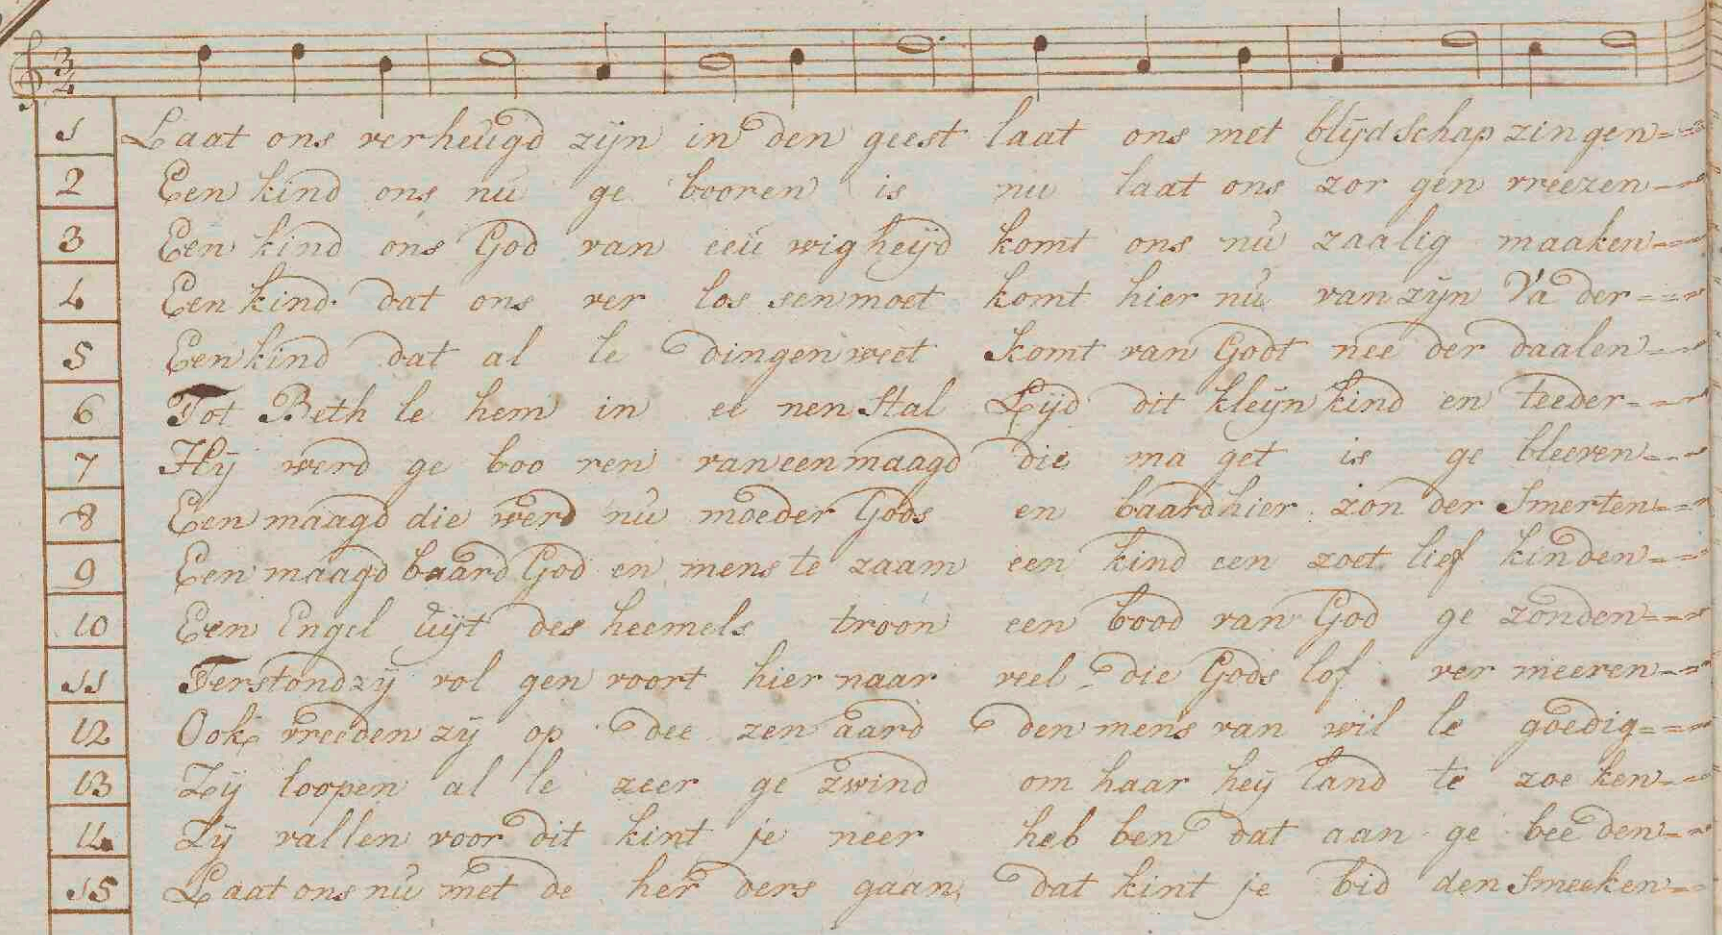 3/4
1 Laat ons verheugd zijn in den geest laat ons met blijdschap zingen
2 Een kind ons nu ge booren is nu laat ons zor gen vreezen
3 Een kind ons God van eeu wig heijd komt ons nu zaalig maaken
4 Een kind dat ons ver los sen moet komt hier nu van zijn Va der
5 Een kind dat al le dingen weet komt van Godt nee der daalen
6 Tot Beth le hem in ee nen stal Lijd dit kleijn kind en teeder
7 Hij werd ge boo ren van een maagd die ma get is ge bleeven
8 Een maagd die werd nu moeder Gods en baard hier zon der smerten
9 Een maagd baard God en mens te zaam een kind een zoet lief kinden
10 Een Engel uijt des heemels troon een bood van God ge zonden
11 Terstond zij vol gen voort hier naar veel die Gods lof ver meeren
12 Ook vreeden zij op dee zen aard den mens van wil le goedig
13 Zij loopen al le zeer ge zwind om haar heij land te zoe ken
14 Zij vallen voor dit kint je neer heb ben dat aan ge bee den
15 Laat ons nu met de her ders gaan dat kint je bid den smeeken